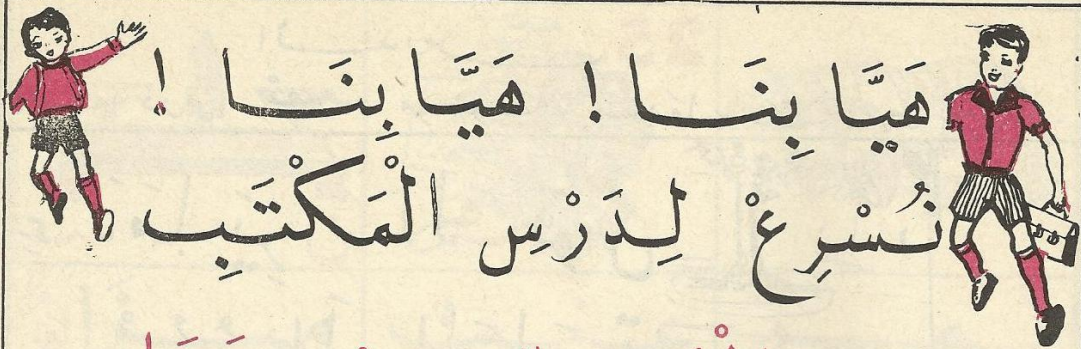 هَيَّا بِنَا ! هَيَّا بِنَا !
نُسْرِعْ لِدَرْسِ الْمَكْتَبِ